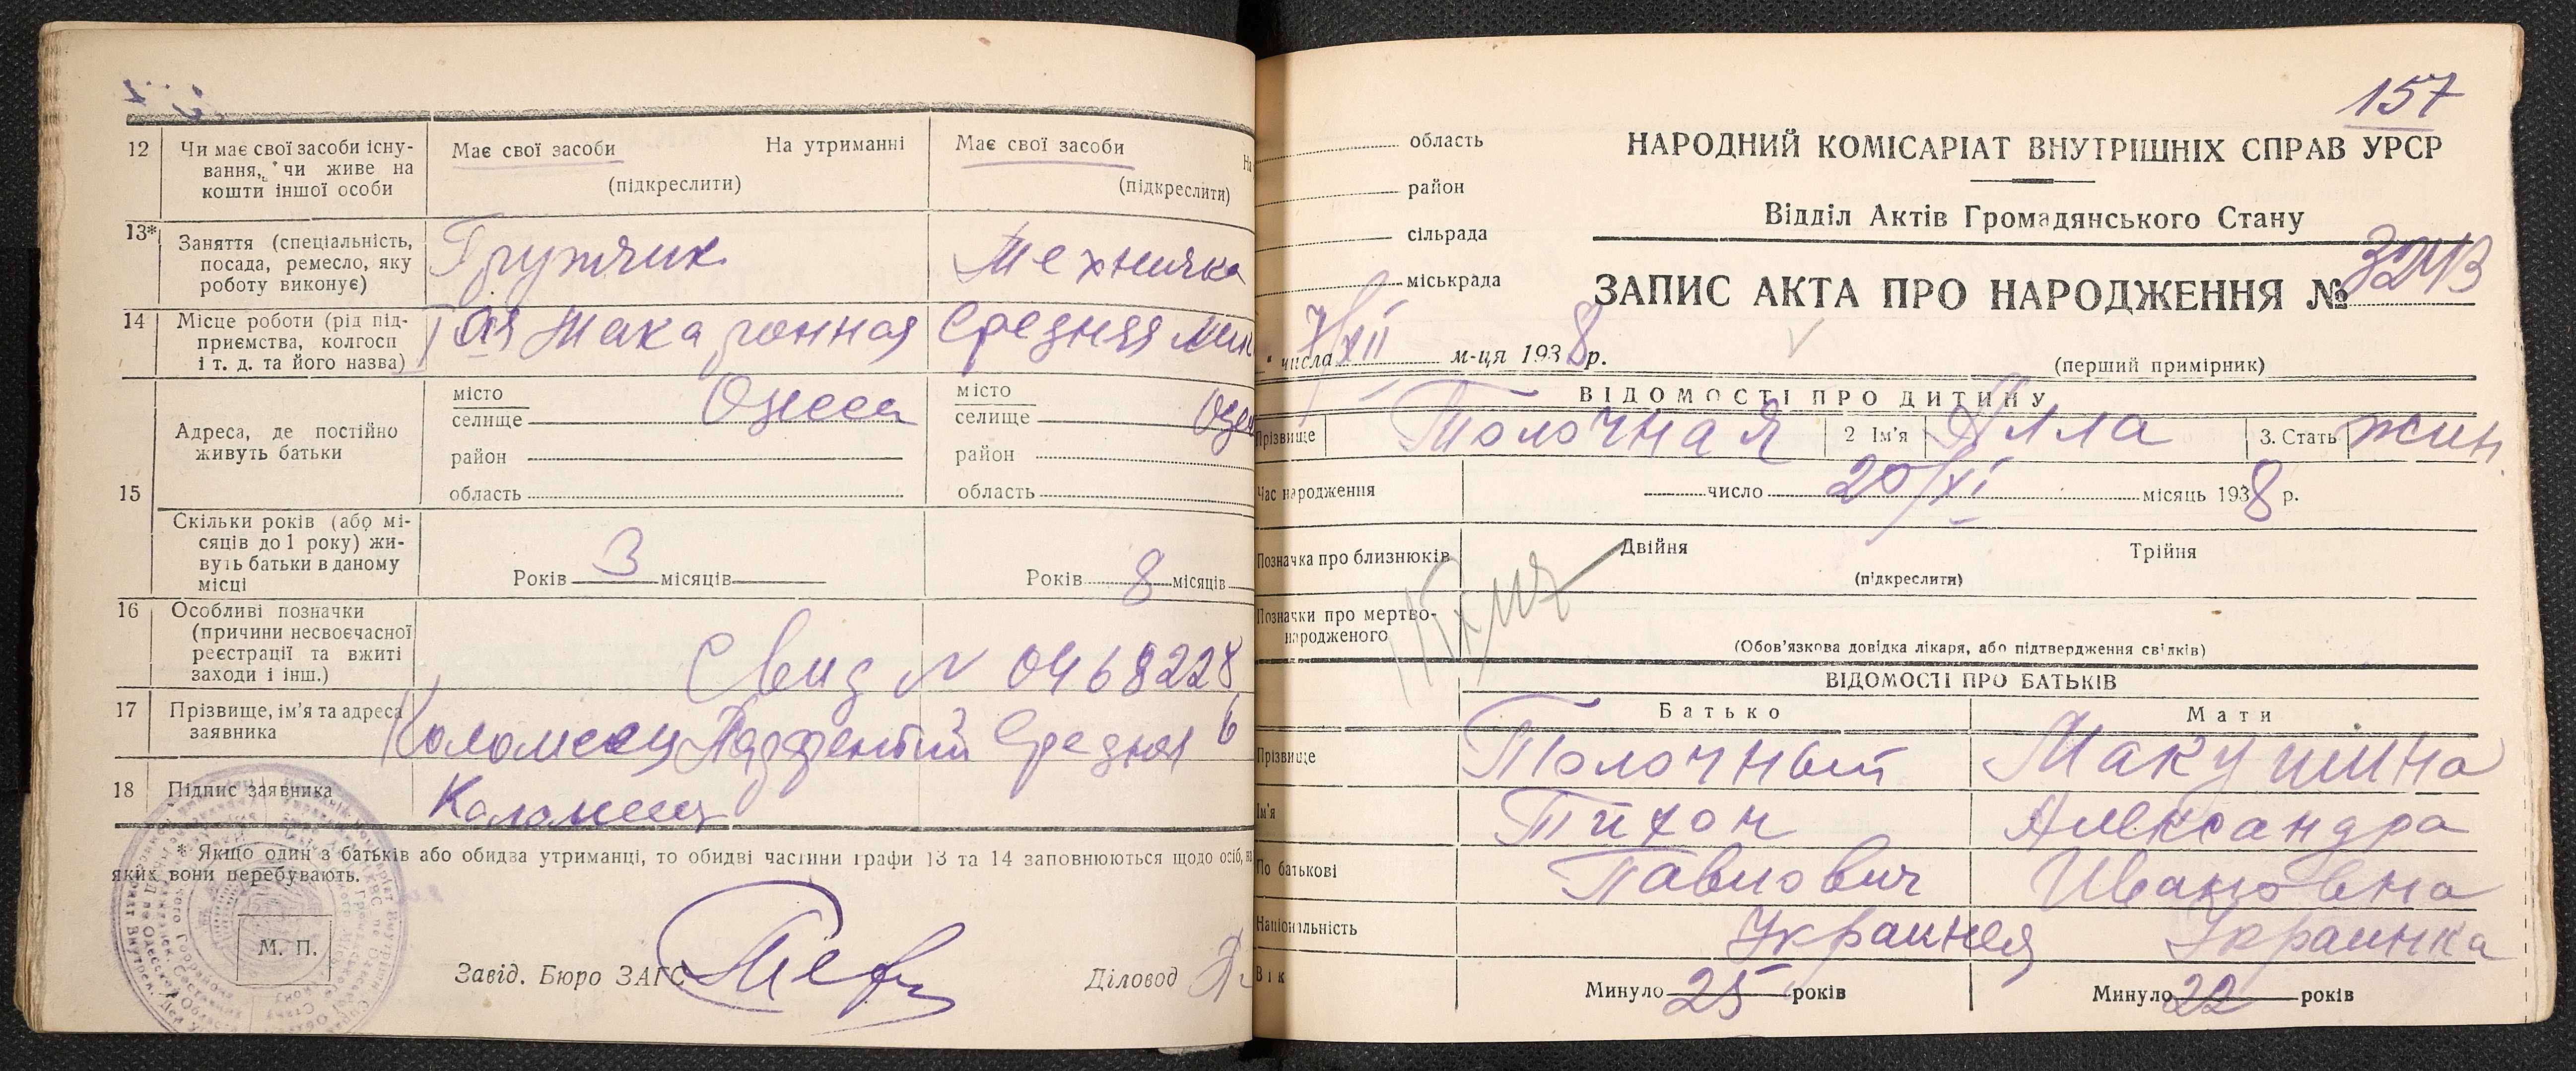 12 Чи має свої засоби існу-
вання, чи живе на
кошти іншої особи
Має свої засоби На утриманні
(підкреслити)
Має свої засоби На
(підкреслити)
13* Заняття (спеціальність,
посада, ремесло, яку
роботу виконує)
Грузчик
Техничка
14 Місце роботи (рід під-
приємства, колгосп
і т. д. та його назва)
Макаронная
Средняя
15 Адреса, де постійно
живуть батьки
місто
селище Одесса
район
область
місто
селище Одес
район
область
Скільки років (або мі-
сяців до 1 року) жи-
вуть батьки в даному
місці
Років 3 місяців
Років 8 місяців
16 Особливі позначки
(причини несвоєчасної
реєстрації та вжиті
заходи і інш.)
Свид N 0468228
17 Прізвище, ім'я та адреса
заявника
Коломеец Парфентий Средняя 6
18 Підпис заявника
Коломеец
* Якщо один з батьків або обидва утриманці, то обидві частини графи 13 та 14 заповнюються щодо осіб, на
яких вони перебувають.
М. П.
Завід. Бюро ЗАГС
Діловод
157
область
район
сільрада
міськрада
НАРОДНИЙ КОМІСАРІАТ ВНУТРІШНІХ СПРАВ УРСР
Відділ Актів Громадянського Стану
ЗАПИС АКТА ПРО НАРОДЖЕННЯ № 3243
" числа 7/XII м-ця 1938 р.
(перший примірник)
ВІДОМОСТІ ПРО ДИТИНУ
Прізвище Толочная 2 Ім'я Алла 3. Стать жин.
Час народження число 20/XI місяць 1938 р.
Позначка про близнюків Двійня Трійня
(підкреслити)
Позначки про мертво-
народженого
(Обов'язкова довідка лікаря, або підтвердження свідків)
ВІДОМОСТІ ПРО БАТЬКІВ
Батько Мати
Прізвище Толочный Макушина
Ім'я Тихон Александра
По батькові Павлович Ивановна
Національність Украинец Украинка
Вік Минуло 25 років Минуло 22 років